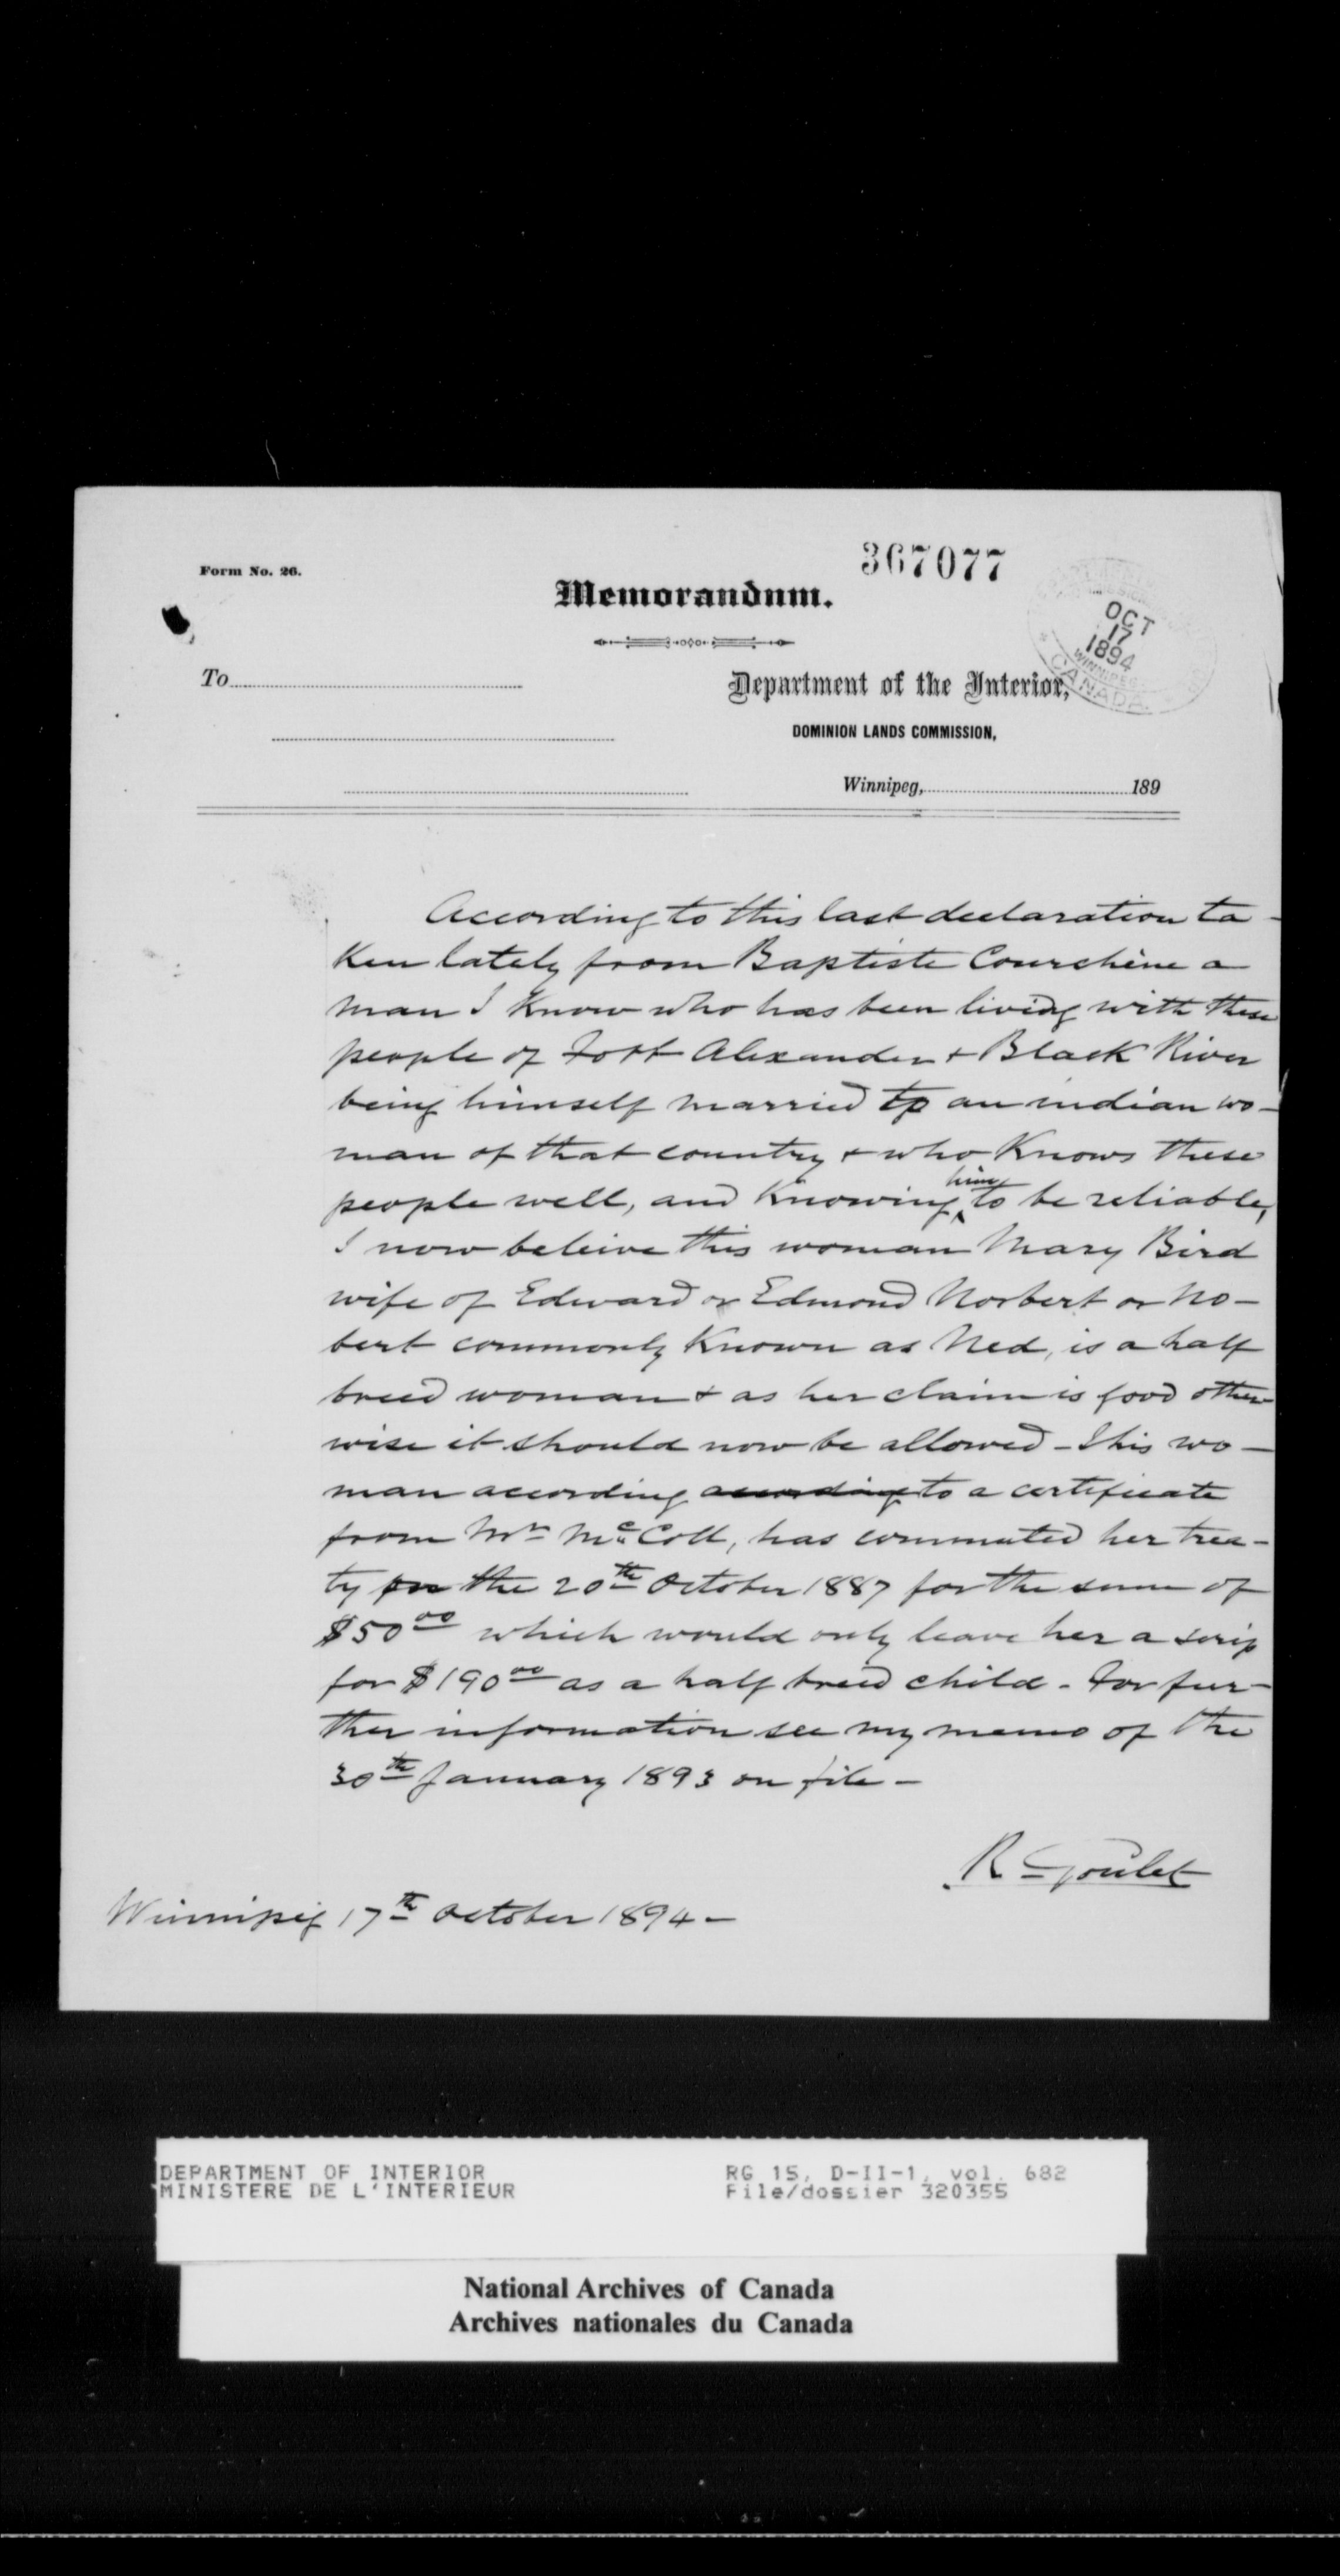 367077
Form No. 26.
Memorandum.
OCT
17
1894
WINNIPEG
CANADA
To
Department of the Interior,
DOMINION LANDS COMMISSION,
Winnipeg, 189
According to this last declaration ta-
ken lately from Baptiste Courchène a
man I know who has been living with these
people of Fort Alexander + Black River
being himself married to an indian wo-
man of that country + who Knows these
people well, and Knowing him to be reliable,
I now beleive this woman Mary Bird
wife of Edward or Edmond Norbert or No-
bert commonly Known as Ned, is a half
breed woman + as her claim is good other-
wise it should now be allowed - This wo-
man according according to a certificate
from Mr McColl, has commuted her trea-
ty on the 20th October 1887 for the sum of
$50 00 which would only leave her a scrip
for $190 00 as a half breed child - For fur-
ther information see my memo of the
30th January 1893 on file -
R Goulet
Winnipeg 17th October 1894 -
DEPARTMENT OF INTERIOR RG 15, D-II-1, vol. 682
MINISTERE DE L'INTERIEUR File/dossier 320355
National Archives of Canada
Archives nationales du Canada